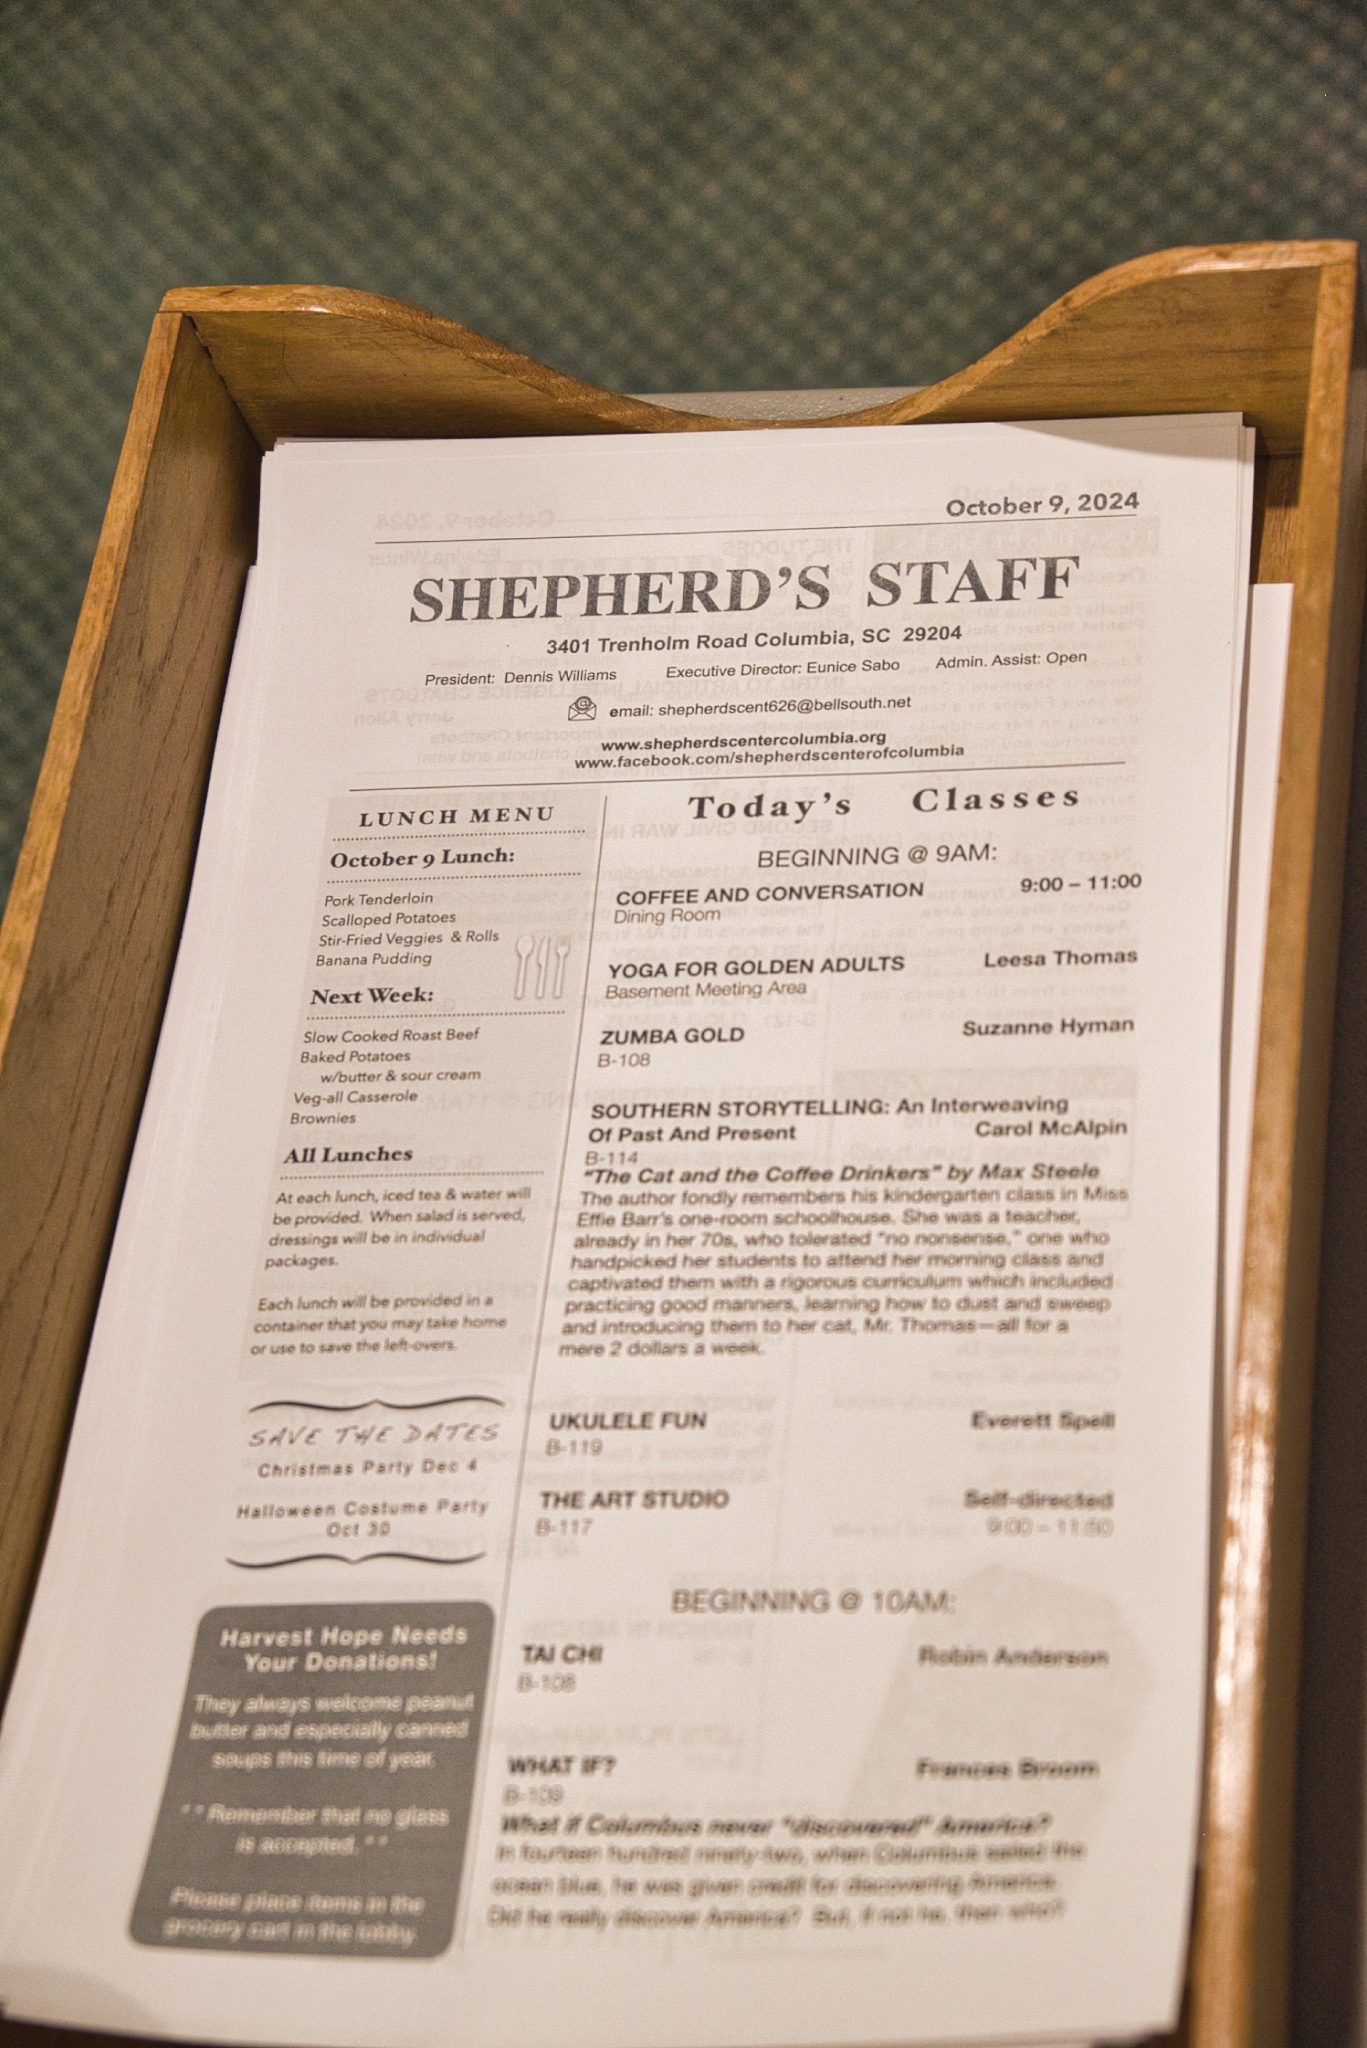 October 9, 2024
SHEPHERD'S STAFF
3401 Trenholm Road Columbia, SC 29204
President: Dennis Williams Executive Director: Eunice Sabo Admin. Assist: Open
email: shepherdscent626@bellsouth.net
www.shepherdscentercolumbia.org
www.facebook.com/shepherdscenterofcolumbia
LUNCH MENU
October 9 Lunch:
Pork Tenderloin
Scalloped Potatoes
Stir-Fried Veggies & Rolls
Banana Pudding
Next Week:
Slow Cooked Roast Beef
Baked Potatoes
w/butter & sour cream
Veg-all Casserole
Brownies
All Lunches
At each lunch, iced tea & water will
be provided. When salad is served,
dressings will be in individual
packages.
Each lunch will be provided in a
container that you may take home
or use to save the left-overs.
SAVE THE DATES
Christmas Party Dec 4
Halloween Costume Party
Oct 30
Harvest Hope Needs
Your Donations!
They always welcome peanut
butter and especially canned
soups this time of year.
**Remember that no glass
is accepted.**
Please place items in the
grocery cart in the lobby.
Today's Classes
BEGINNING @ 9AM:
COFFEE AND CONVERSATION 9:00 – 11:00
Dining Room
YOGA FOR GOLDEN ADULTS Leesa Thomas
Basement Meeting Area
ZUMBA GOLD Suzanne Hyman
B-108
SOUTHERN STORYTELLING: An Interweaving
Of Past And Present Carol McAlpin
B-114
"The Cat and the Coffee Drinkers" by Max Steele
The author fondly remembers his kindergarten class in Miss
Effie Barr's one-room schoolhouse. She was a teacher,
already in her 70s, who tolerated "no nonsense," one who
handpicked her students to attend her morning class and
captivated them with a rigorous curriculum which included
practicing good manners, learning how to dust and sweep
and introducing them to her cat, Mr. Thomas—all for a
mere 2 dollars a week.
UKULELE FUN Everett Spell
B-119
THE ART STUDIO Self-directed
B-117 9:00 – 11:50
BEGINNING @ 10AM:
TAI CHI Robin Anderson
B-108
WHAT IF? Frances Broom
B-109
What if Columbus never "discovered" America?
In fourteen hundred ninety-two, when Columbus sailed the
ocean blue, he was given credit for discovering America.
Did he really discover America? But, if not he, then who?